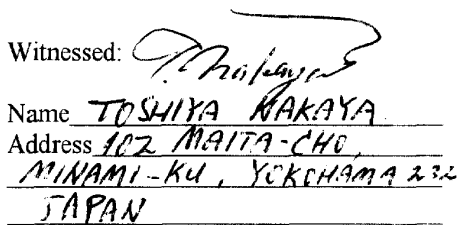 Witnessed: T. Nakaya
Name TOSHIYA NAKAYA
Address 102 MAITA-CHO,
MINAMI-KU, YOKOHAMA 232
JAPAN